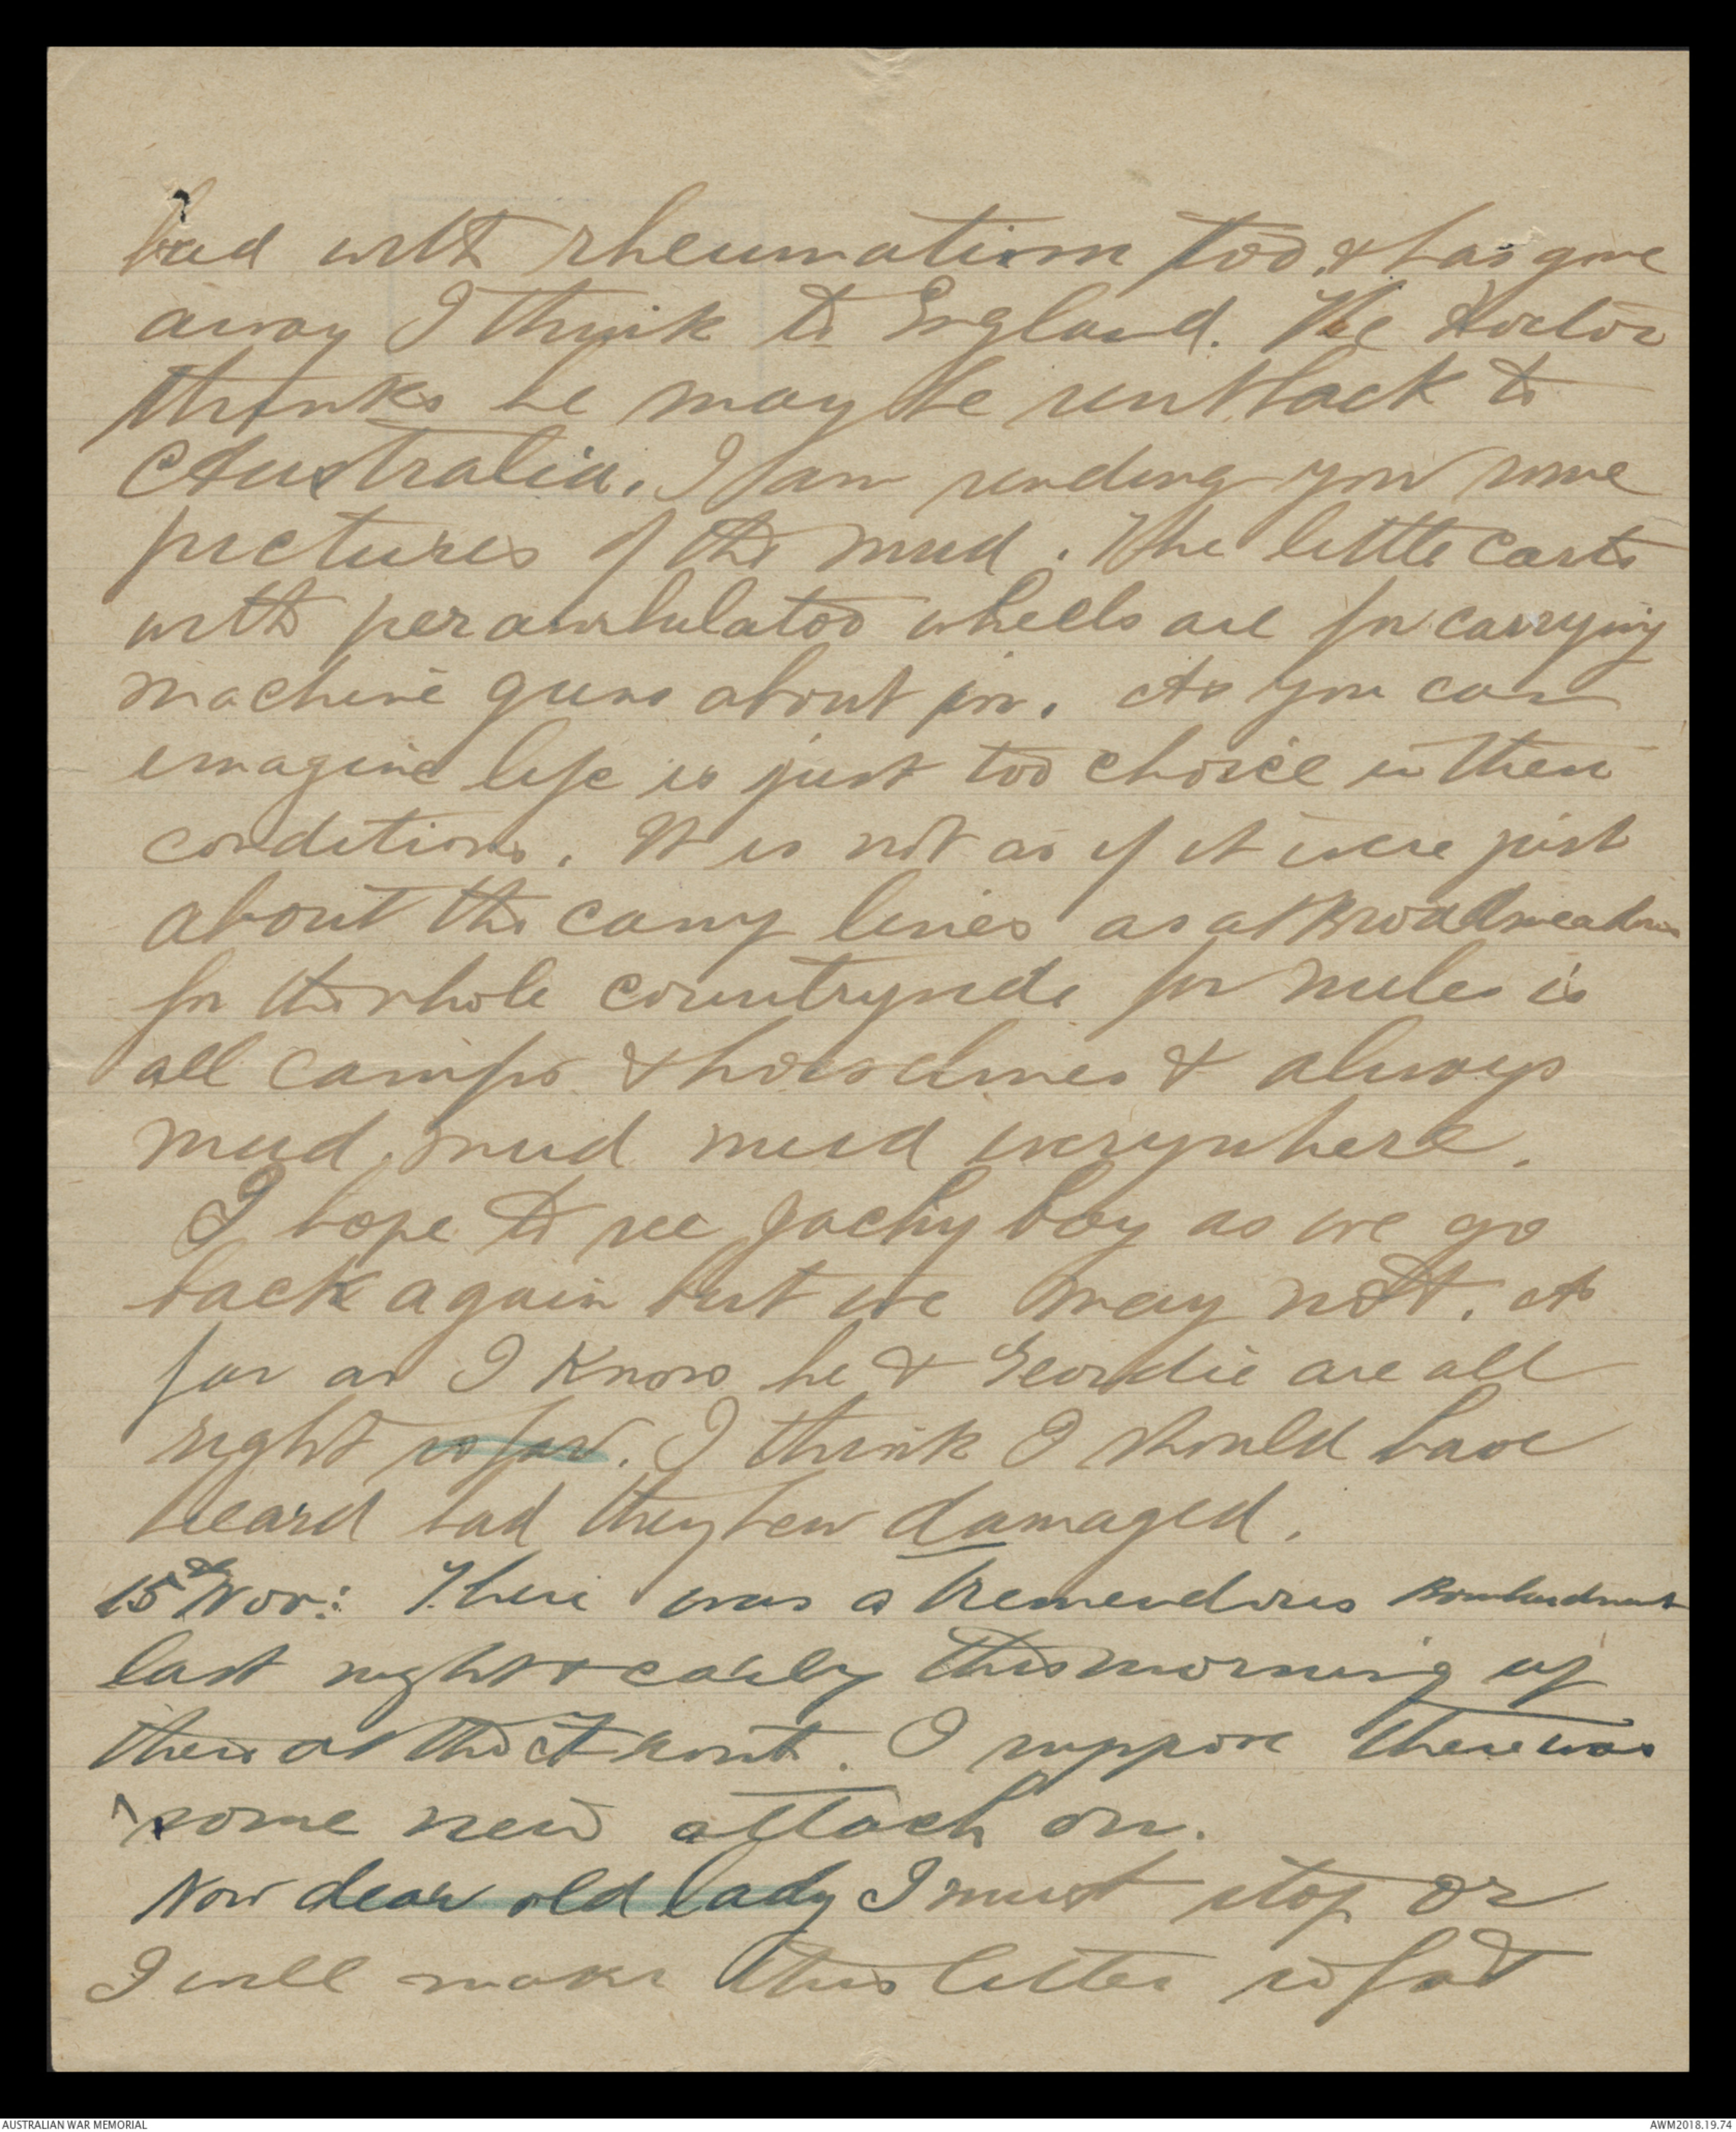 bad with rheumatism too & has gone
away I think to England. The Doctor
thinks he may be sent back to
Australia. I am sending you some
pictures of the mud. The little carts
with perambulator wheels are for carrying
machine guns about in. As you can
imagine life is just too choice in these
conditions. It is not as if it were just
about the camp lines as at Broadmeadows
for the whole countryside for miles is
all camps & horselines & always
mud, mud mud everywhere.
I hope to see Jacky boy as we go
back again but we may not. As
far as I know he & Geordie are all
right so far. I think I should have
heard had they been damaged.
15th Nov: There was a tremendous Bombardment
last night & early this morning up
there at the Front. I suppose there was
some new attack on.
Now dear old lady I must stop or
I will make this letter so fat
AUSTRALIAN WAR MEMORIAL
AWM2018.19.74